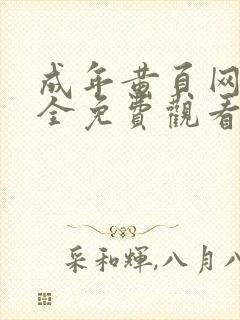 成年黄頁网
全免費觀看
采和輝,八月八